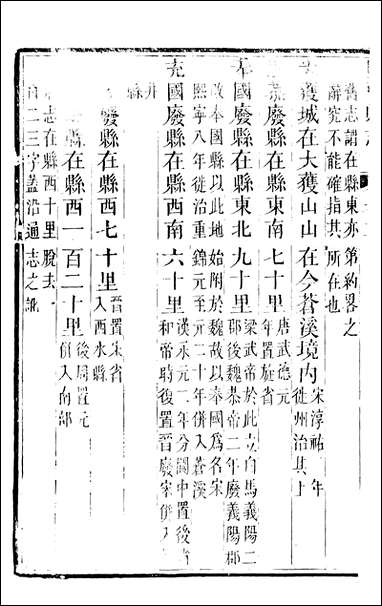 舊志謂在縣東亦第約畧之
辭究不能確指其所在也
獲城在大獲山山在今蒼溪境內 宋淳祐 年
徙州治其上
廢縣在縣東南七十里 唐武德元
年置旋省
奉國廢縣在縣東北九十里 梁武帝於此立白馬義陽二
郡後魏恭帝二年廢義陽郡
改奉國縣以此地始附於魏故以奉國爲名宋
熙寧八年徙治重錦元至元二十年併入蒼溪
充國廢縣在縣西南六十里 漢永元二年分閬中置後省
和帝時後置晉廢宋併入
縣
廢縣在縣西七十里 晉置宋省
入西水縣
縣在縣西一百二十里 後周置元
併入南部
志在縣西十里脫去一
二三字蓋沿通志之訛